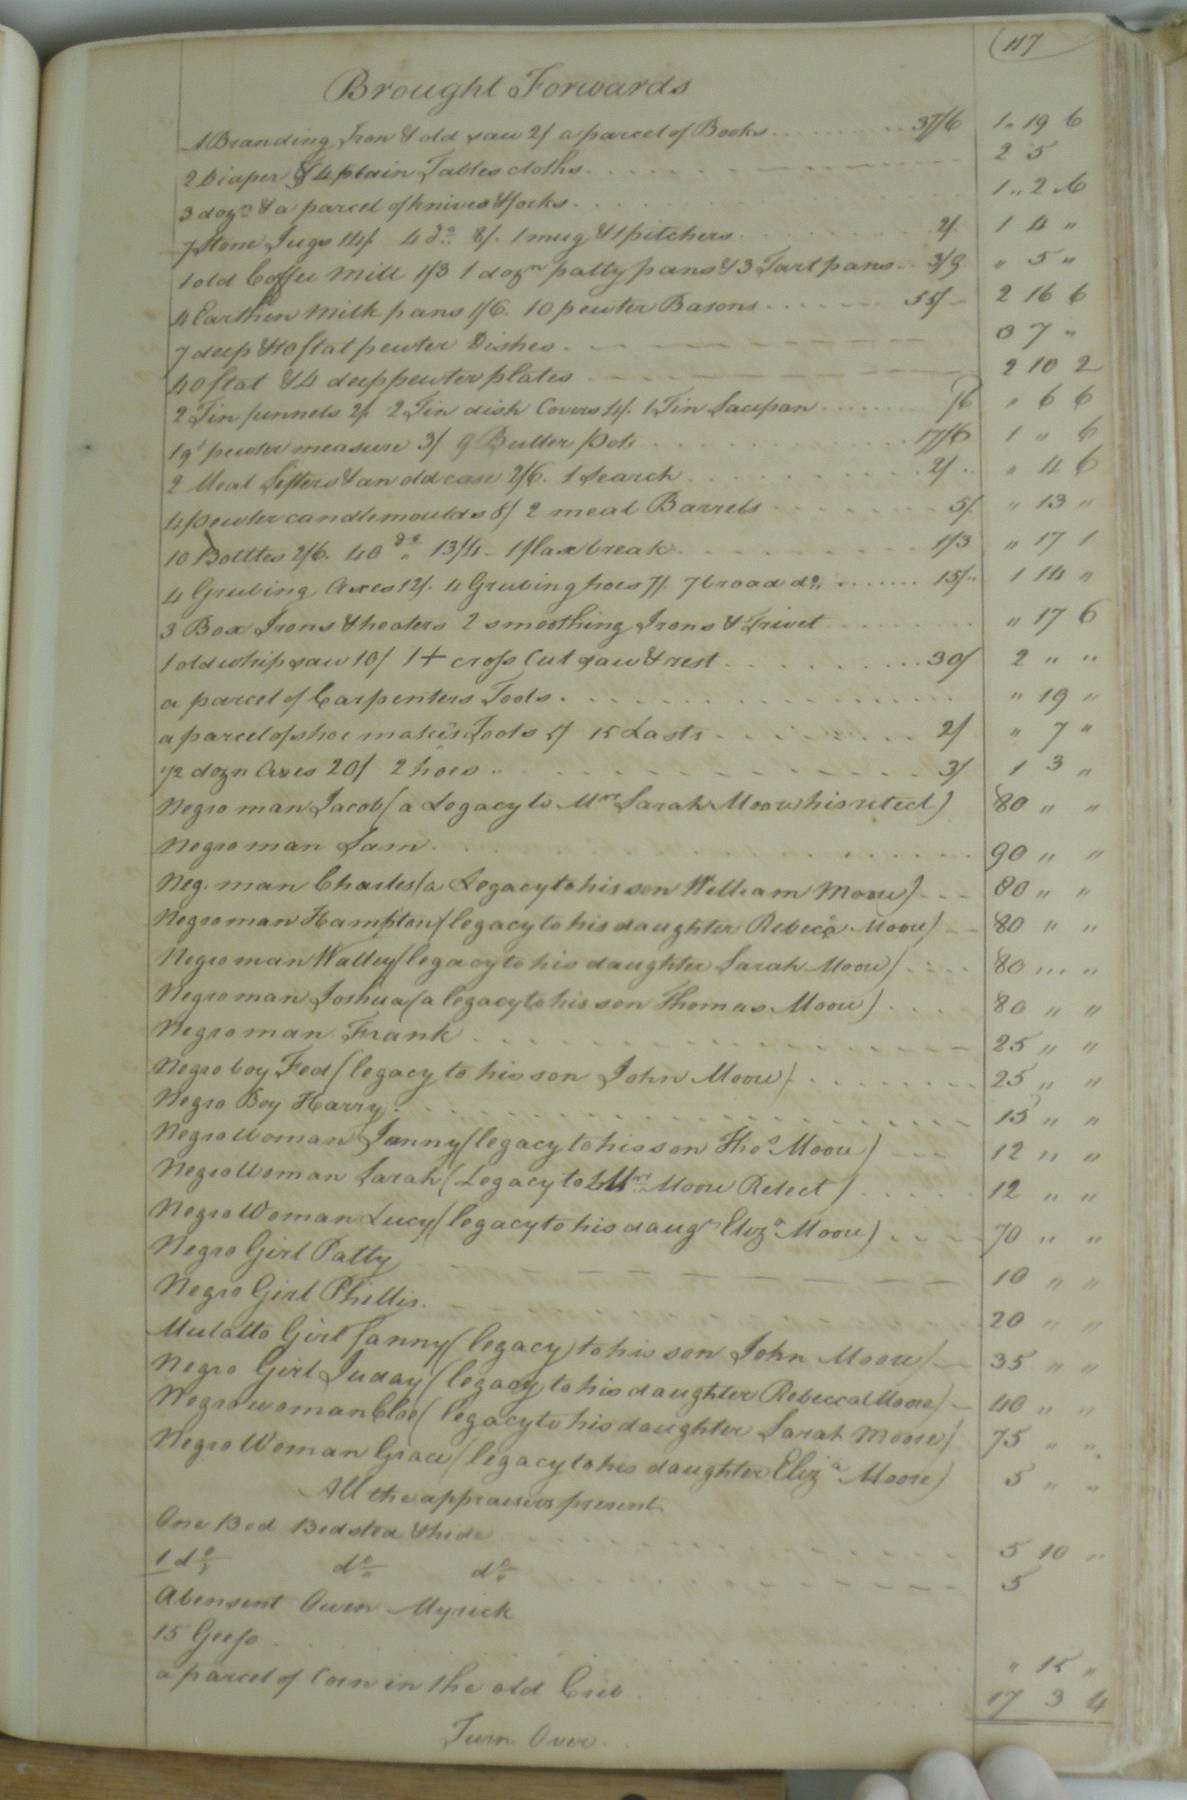 117
Brought Forwards
1 Branding Iron & old saw 2/ a parcel of Books 37/6 1 19 6
2 Diaper & 4 plain Tables cloths 2 5
3 dozn & a parcel of knives & forks 1 2 6
7 Stone Jugs 14/. 4 do 8/. 1 mug & 1 pitchers 2/. 1 4 "
1 old Coffee Mill 1/3 1 dozn patty pans & 3 Tart pans 3/9 " 5 "
4 Earthen Milk pans 1/6. 10 pewter Basons 55/ 2 16 6
7 deep & 10 flat pewter Dishes 3 7 "
40 flat & 4 deep pewter plates 2 10 2
2 Tin funnels 2/. 2 Tin dish Covers 4/. 1 Tin Saucpan /6 " 6 6
1 qt pewter measure 3/ 9 Butter Pots 17/6 1 " 6
2 Meal Sifters & an old case 2/6. 1 Search 2/ " 4 6
4 pewter candlemoulds 8/ 2 meal Barrels 5/ " 13 "
10 Bottles 2/6. 40 do 13/4 1 flax break 1/3 " 17 1
4 Grubing Axes 12/. 4 Grubing hoes 7/. 7 broad do 15/ 1 14 "
3 Box Irons & heaters 2 smoothing Irons & Trivet " 17 6
1 old whip saw 10/ 1 + cross Cut saw & rest 30/ 2 " "
a parcel of Carpenters Tools " 19 "
a parcel of shoe makers Tools 5/ 15 Lasts 2/ " 7 "
1/2 dozn Axes 20/ 2 hoes 3/ 1 3 "
Negro man Jacob (a Legacy to Mrs Sarah Moore his relect) 80 " "
Negro man Sam 90 " "
Neg. man Charles (a Legacy to his son William Moore) 80 " "
Negro man Hampton (legacy to his daughter Rebeca Moore) 80 " "
Negro man Walley (legacy to his daughter Sarah Moore) 80 " "
Negro man Joshua (a legacy to his son Thomas Moore) 80 " "
Negro man Frank 25 " "
Negro boy Fed (legacy to his son John Moore) 25 " "
Negro Boy Harry 15 " "
Negro Woman Janny (legacy to his son Thos Moore) 12 " "
Negro Woman Sarah (Legacy to Mrs Moore Relect) 12 " "
Negro Woman Lucy (legacy to his daugr Eliza Moore) 70 " "
Negro Girl Patty 10 " "
Negro Girl Phillis 20 " "
Mulatto Girl fanny (legacy to his son John Moore) 35 " "
Negro Girl Juday (legacy to his daughter Rebecca Moore) 40 " "
Negro woman Cloe (legacy to his daughter Sarah Moore) 75 " "
Negro Woman Grace (legacy to his daughter Eliza Moore) 5 " "
All the appraisers present
One Bed Bedsted & hide 5 10 "
1 do do do 5
Abensent Owen Myrick
15 Geese " 15 "
a parcel of Corn in the old Crib 17 3 4
Turn Over